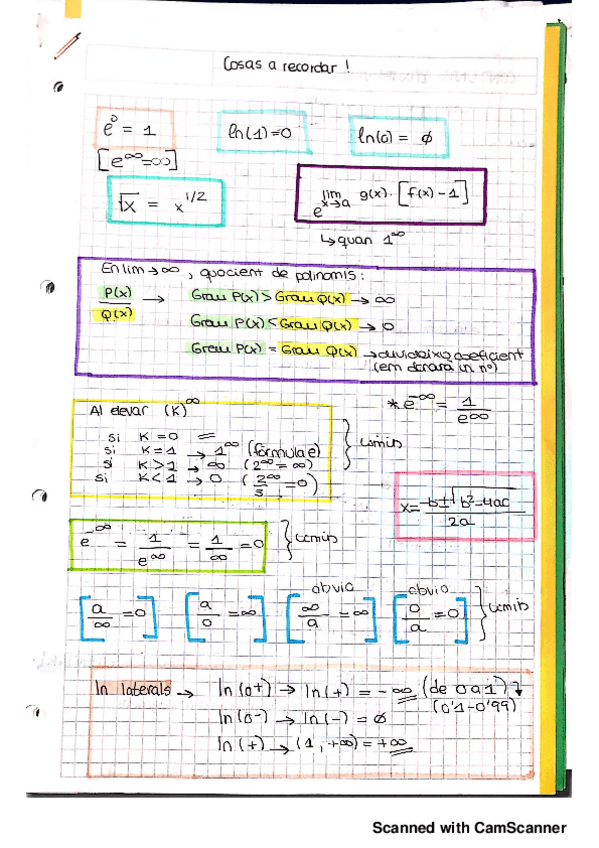 Cosas a recordar!
e⁰ = 1
ln(1)=0
ln(0) = ∅
[e^∞=∞]
√x = x^1/2
e^lim x→a g(x)·[f(x)-1]
↳ quan 1^∞
En lim→∞, quocient de polinomis:
P(x)/Q(x) → Grau P(x)>Grau Q(x) → ∞
Grau P(x)<Grau Q(x) → 0
Grau P(x) = Grau Q(x) → coeficient
(em donarà un nº)
Al elevar (K)^∞
si K=0
si K=1 → 1^∞ (fórmula e)
si K>1 → ∞ (2^∞=∞)
si K<1 → 0 (2^∞/3=0)
} Limits
* e^-∞ = 1/e^∞
x = -b±√b²-4ac / 2a
e^-∞ = 1/e^∞ = 1/∞ = 0 } Limits
obvio obvio
[a/∞=0] [a/0=∞] [∞/a=∞] [0/a=0] } Limits
ln laterals → ln(0+) → ln(+) = -∞ (de 0 a 1)
(0'1-0'99)
ln(0-) → ln(-) = ∅
ln(+) → (1,+∞) = +∞
Scanned with CamScanner